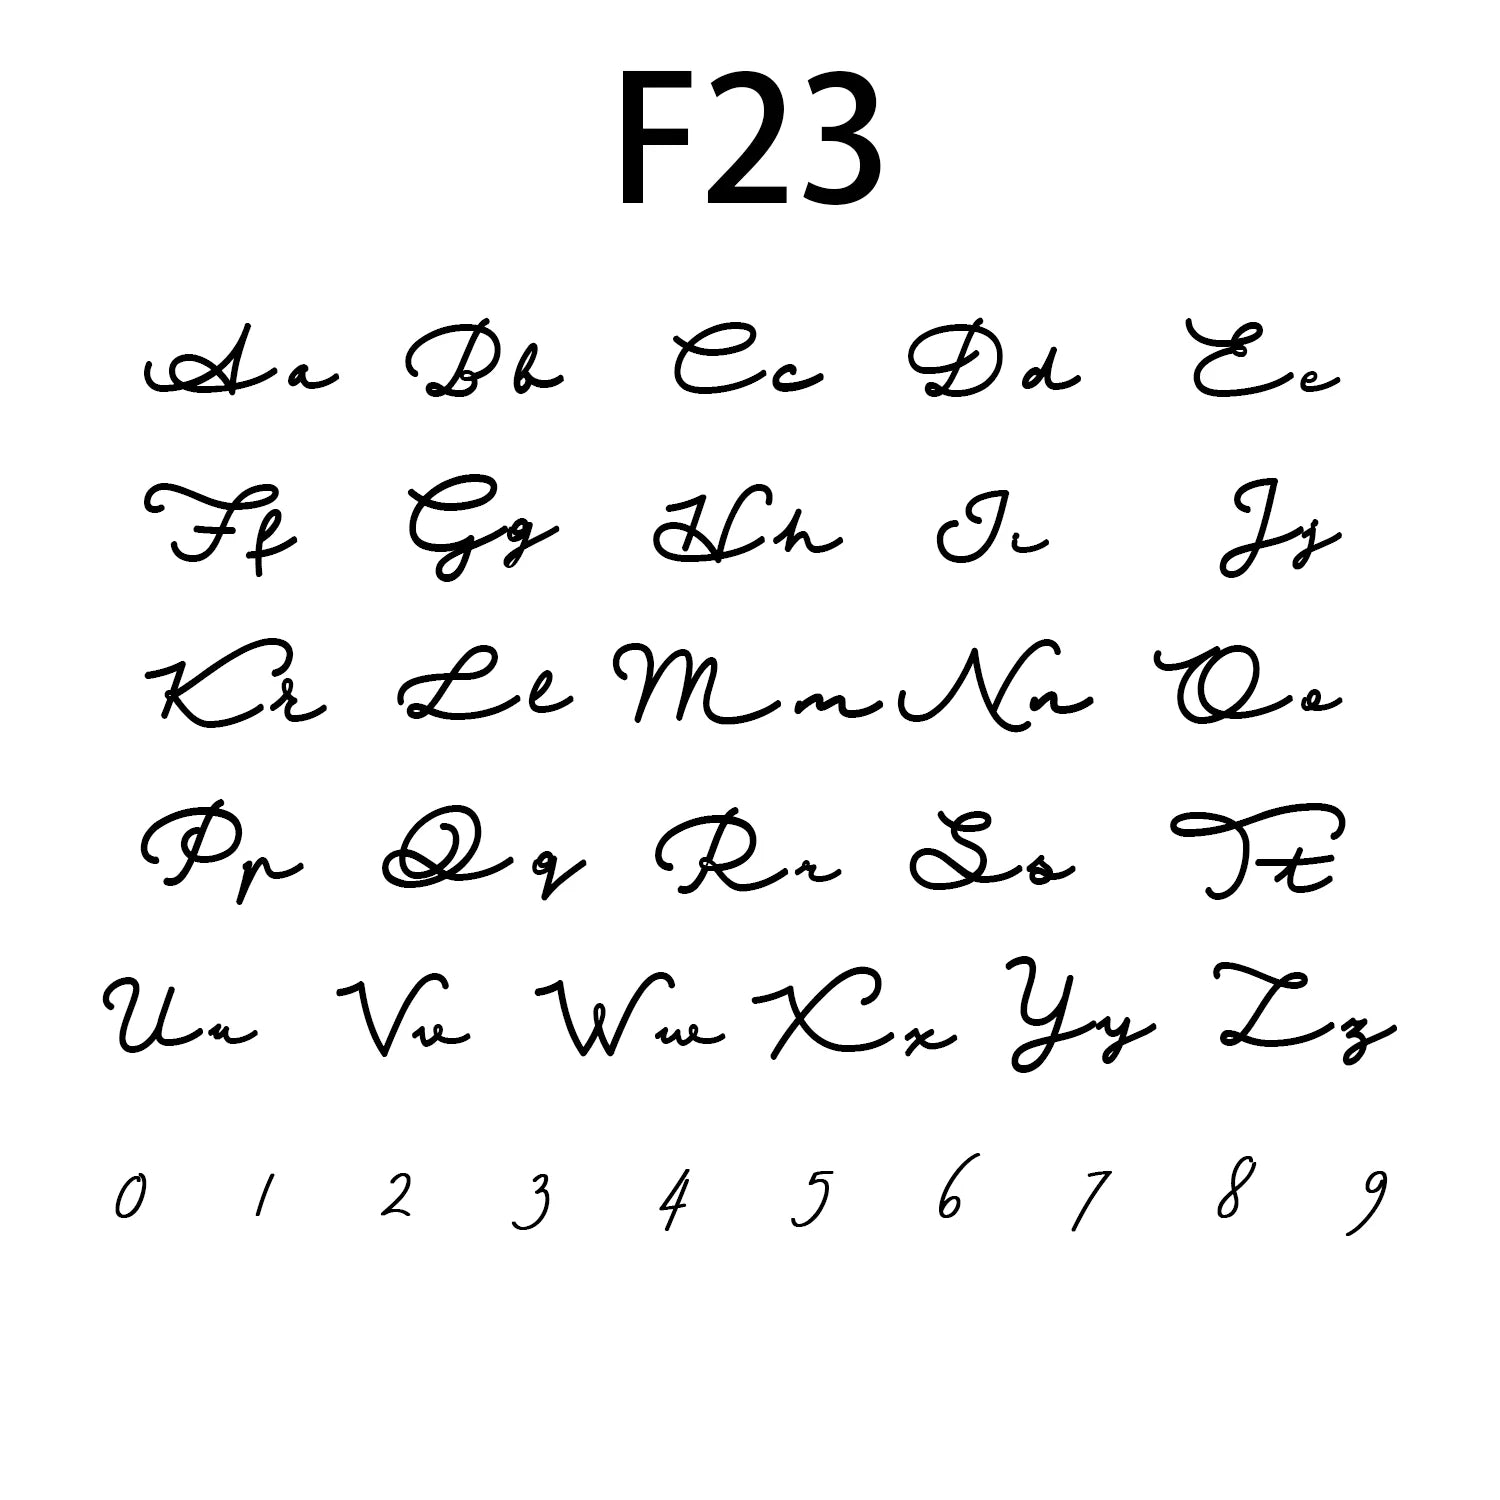 F23
Aa Bb Cc Dd Ee
Ff Gg Hh Ii Jj
Kk Ll Mm Nn Oo
Pp Qq Rr Ss Tt
Uu Vv Ww Xx Yy Zz
0 1 2 3 4 5 6 7 8 9